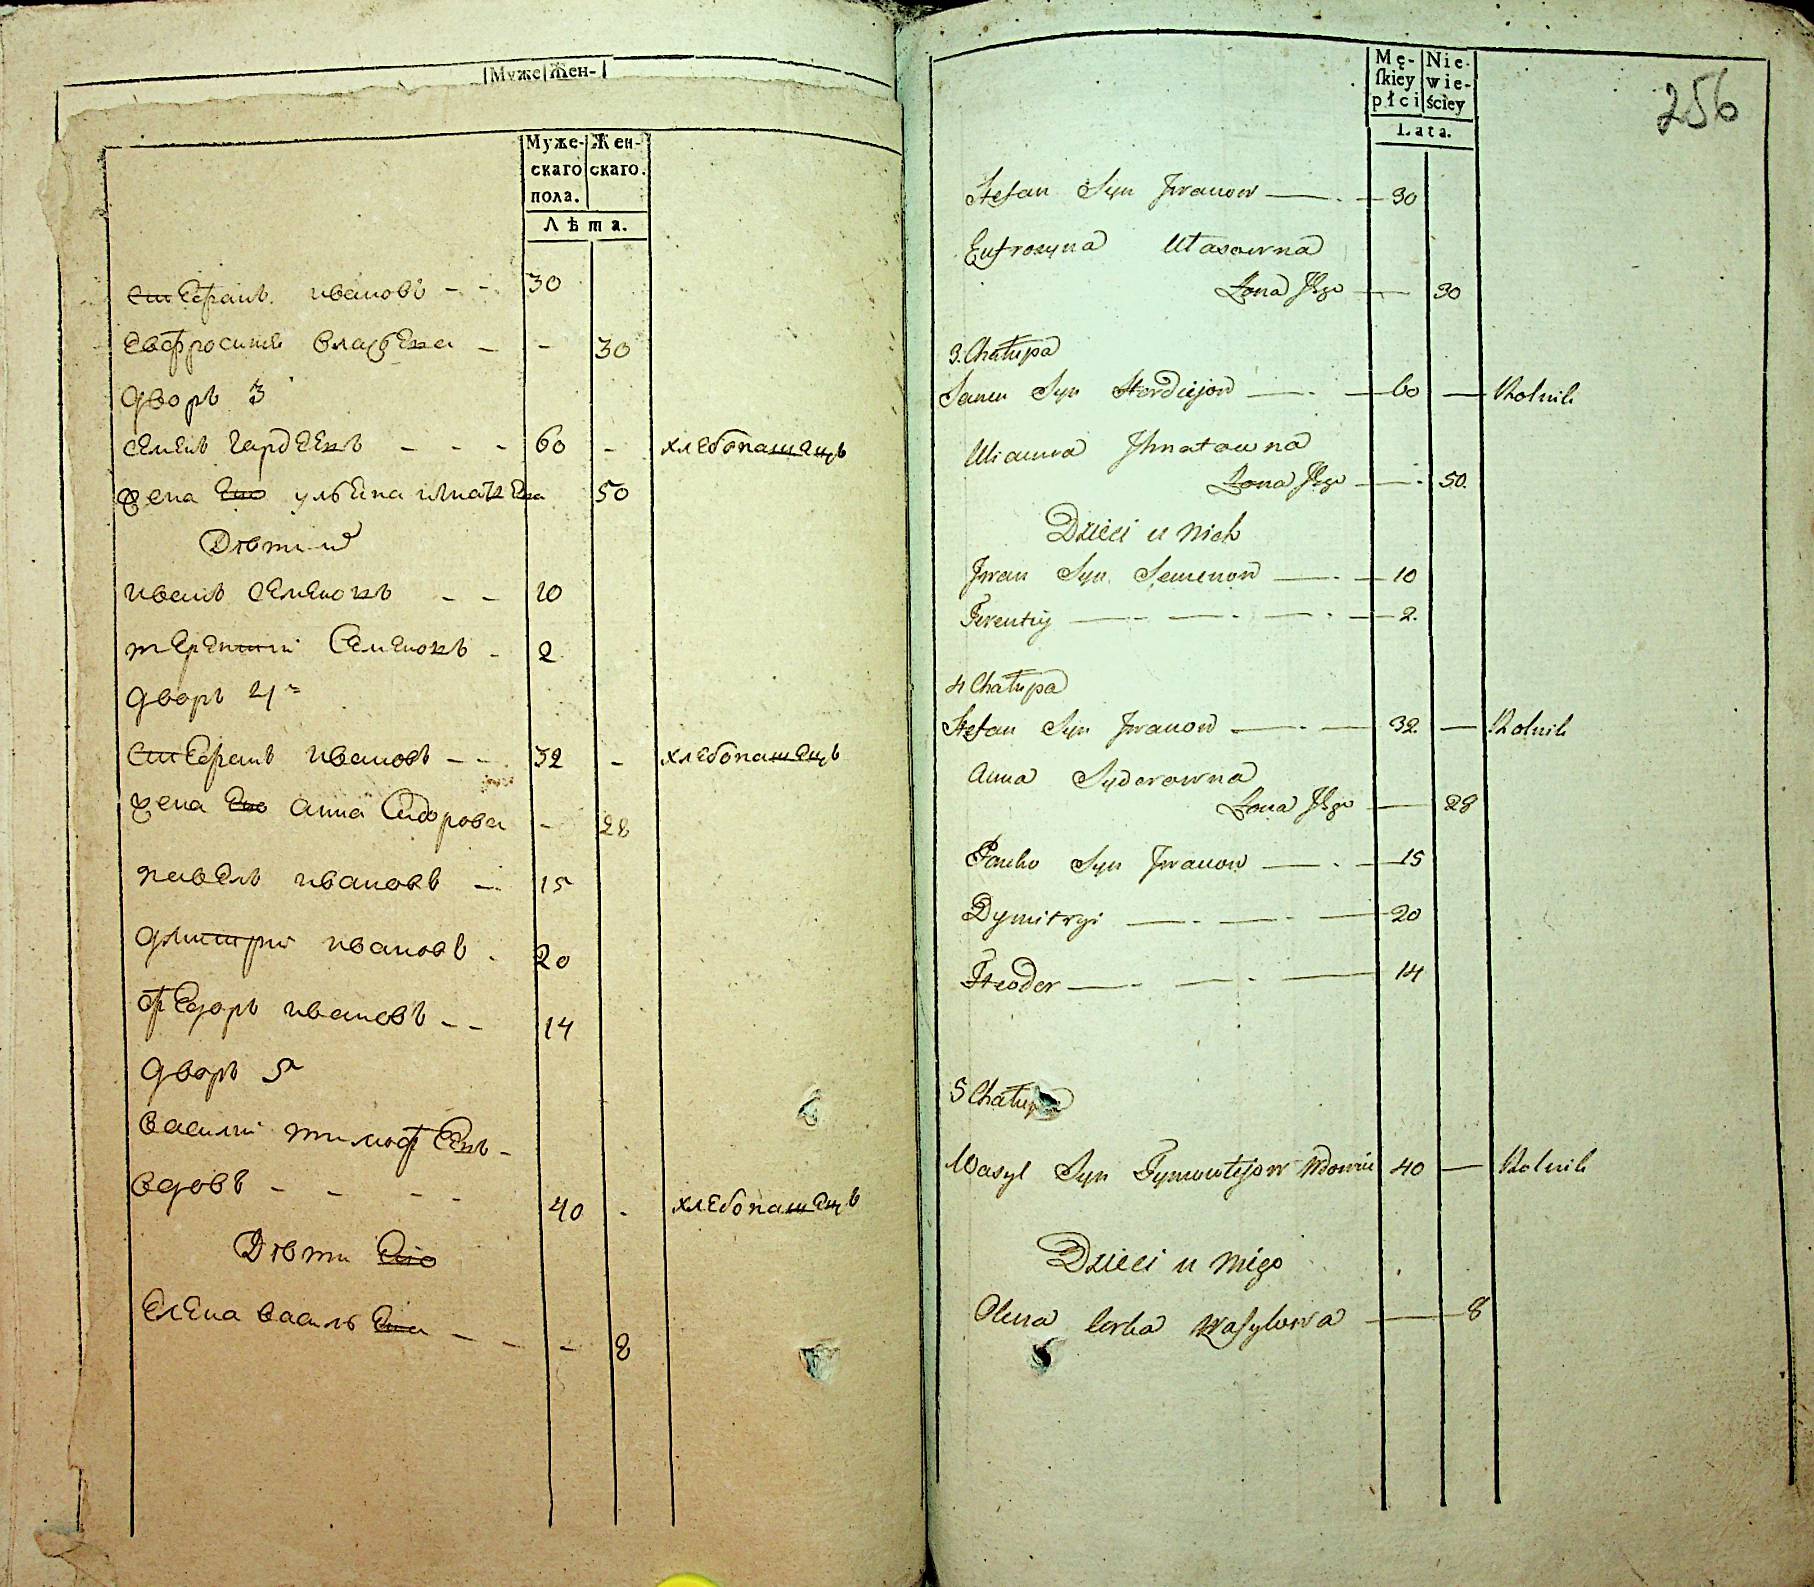 Муже Жен-
Муже- Жен-
скаго скаго.
пола.
Лѣта.
Степанъ Ивановъ - - 30
Евфросинія Власова - - 30
Дворъ 3
Семенъ Гордеевъ - - - 60 - хлебопашецъ
жена его ульяна игнатева 50
Дѣти
иванъ Семеновъ - - 10
терентий Семеновъ - 2
Дворъ 4
Степанъ Ивановъ - - 32 - хлебопашецъ
жена его анна Сидорова - 28
павелъ ивановъ - 15
дмитрий ивановъ - 20
федоръ ивановъ - - 14
Дворъ 5
василий тимофеевъ -
вдовъ - - - - 40 - хлебопашецъ
Дѣти его
Елена василева - - - 8
256
Mę- Nie-
skiey wie-
płci ściey
Lata.
Stefan Syn Jwanow 30
Eufrozyna Własowna
Żona Jego 30
3. Chałupa
Semen Syn Hordiejow 60 Rolnik
Uljanna Jhnatowna
Żona Jego 50.
Dzieci u nich
Jwan Syn Semenow 10
Terentiy 2.
4 Chałupa
Stefan Syn Jwanow 32 Rolnik
Anna Sydorowna
Żona Jego 28
Pawło Syn Jwanow 15
Dymitryi 20
Fteodor 14
5 Chałupa
Wasyl Syn Tymoutejow Wdowiec 40 Rolnik
Dzieci u niego
Olena Corka Wasylowa 8